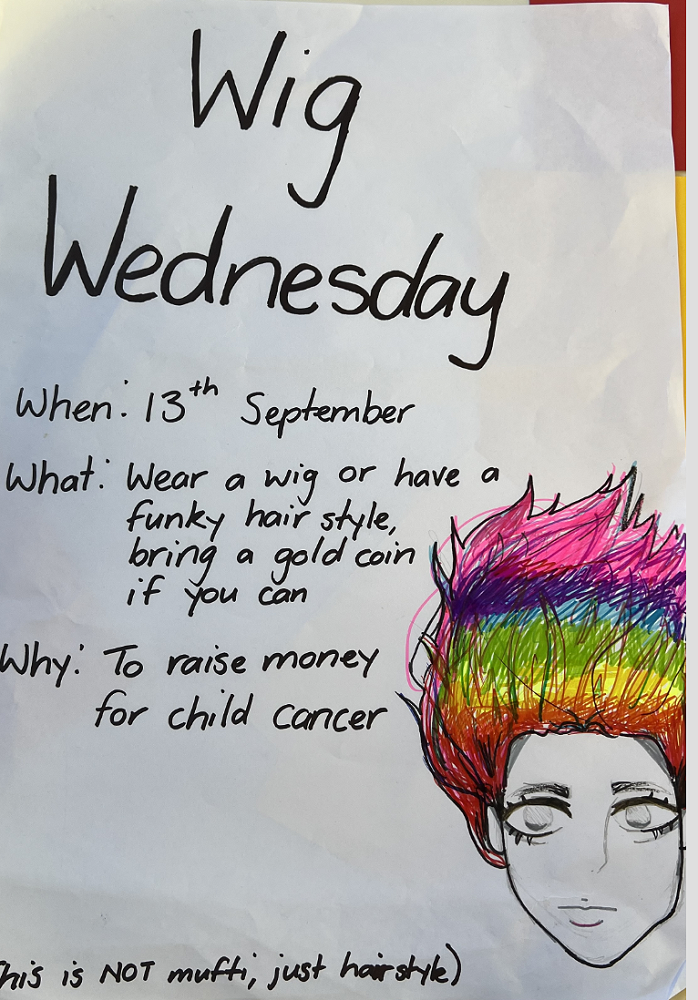 Wig
Wednesday
When: 13th September
What: Wear a wig or have a
funky hair style,
bring a gold coin
if you can
Why: To raise money
for child cancer
his is NOT mufti, just hairstyle)